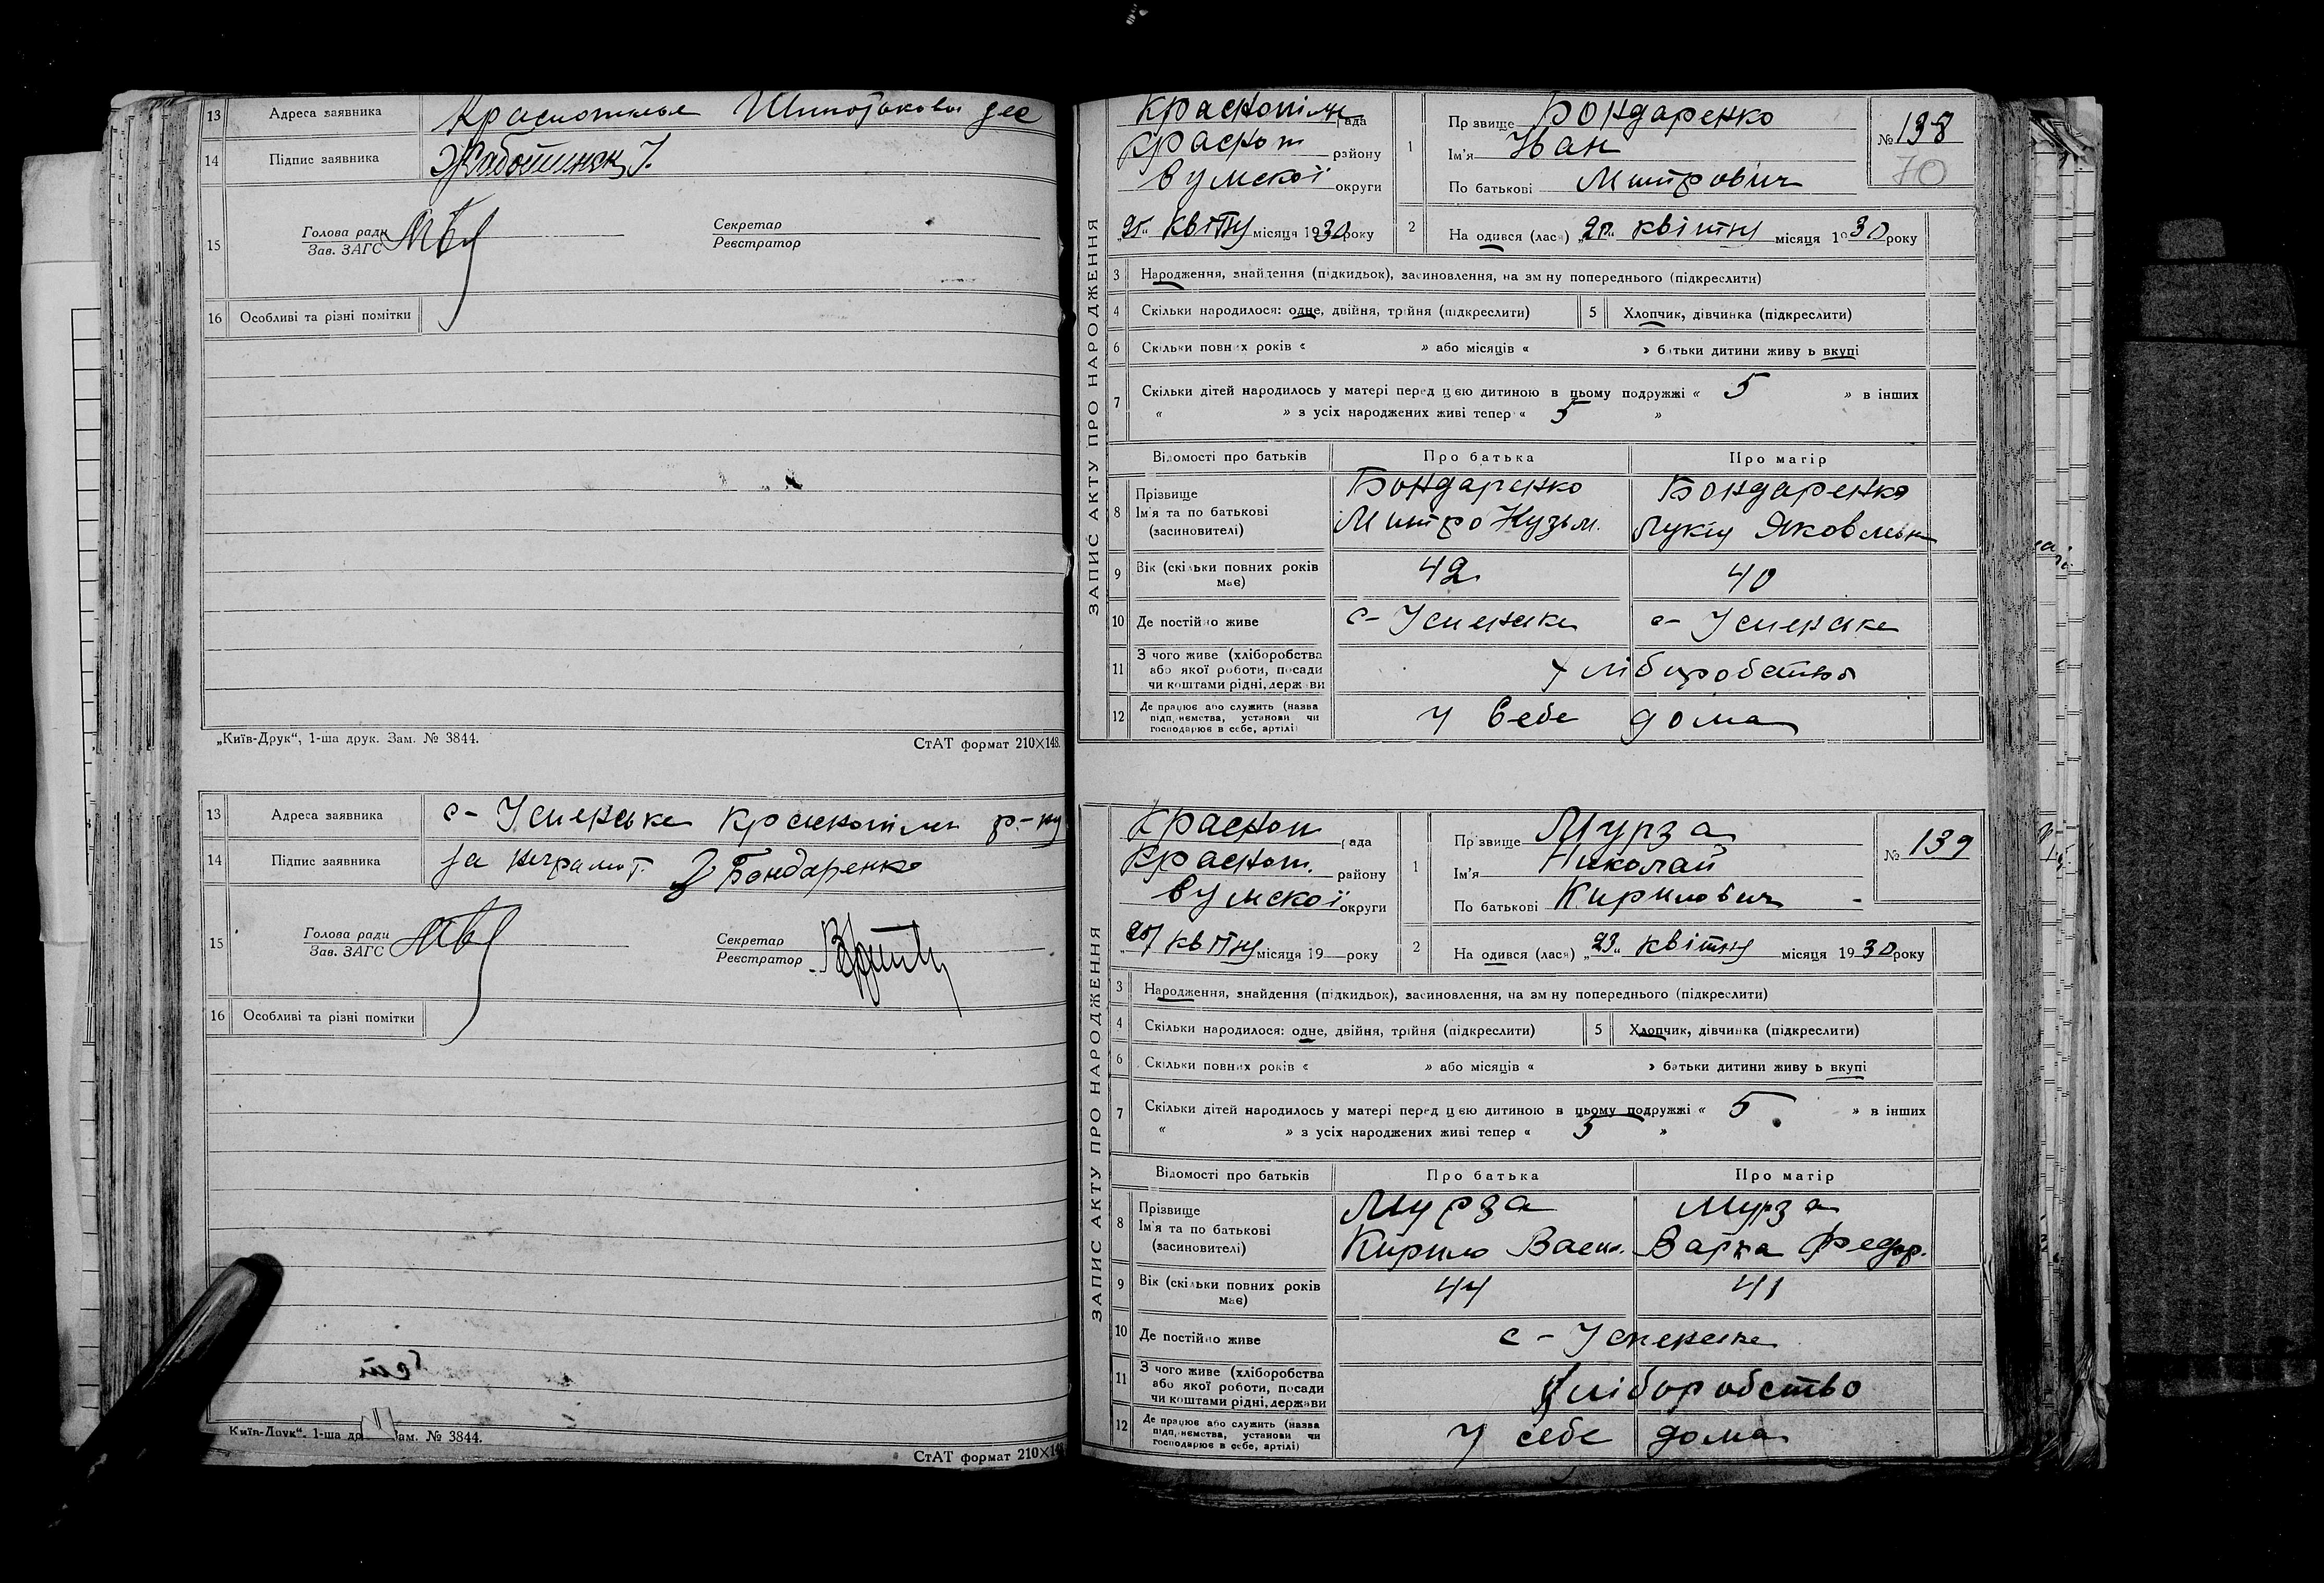 13 Адреса заявника
14 Підпис заявника
15 Голова ради Секретар
Зав. ЗАГС Реєстратор
16 Особливі та різні помітки
„Київ-Друк“, 1-ша друк. Зам. № 3844. СтАТ формат 210×148.
13 Адреса заявника с- Успенське р-ну
14 Підпис заявника за неграмот. Бондаренко
15 Голова ради Секретар
Зав. ЗАГС Реєстратор
16 Особливі та різні помітки
Київ-Друк“, 1-ша др ам. № 3844.
СтАТ формат 210×14
ЗАПИС АКТУ ПРО НАРОДЖЕННЯ
Краснопілм рада
Краспоп району
Сумскої округи
квітну місяця 1930 року
1 Прзвище Бондаренко
Ім'я Иван
По батькові Митрович
№ 138
70
2 На одився (лася) квітну місяця 1930 року
3 Народження, знайдення (підкидьок), засиновлення, на зм ну попереднього (підкреслити)
4 Скільки народилося: одне, двійня, трійня (підкреслити) 5 Хлопчик, дівчинка (підкреслити)
6 Скільки повних років « » або місяців « » батьки дитини живу ь вкупі
7 Скільки дітей народилось у матері перед цією дитиною в цьому подружжі « 5 » в інших
« » з усіх народжених живі тепер « 5 »
Відомості про батьків Про батька Про матір
8 Прізвище Бондаренко Бондаренко
Ім'я та по батькові Митро Кузьм. Лукія Яковлевн
(засиновителі)
9 Вік (скільки повних років має) 42 40
10 Де постійно живе с- Успенске с- Успенске
11 З чого живе (хліборобства
або якої роботи, посади хліборобство
чи коштами рідні, держави
12 Де працює або служить (назва
підприємства, установи чи У себе дома
господарює в себе, артілі)
ЗАПИС АКТУ ПРО НАРОДЖЕННЯ
Краспоп рада
Краспоп. району
Сумскої округи
квітну місяця 19 року
1 Прзвище Мурза
Ім'я Николай
По батькові Кирилович
№ 139
2 На одився (лася) „23“ квітну місяця 1930 року
3 Народження, знайдення (підкидьок), засиновлення, на зм ну попереднього (підкреслити)
4 Скільки народилося: одне, двійня, трійня (підкреслити) 5 Хлопчик, дівчинка (підкреслити)
6 Скільки повних років « » або місяців « » батьки дитини живу ь вкупі
7 Скільки дітей народилось у матері перед цією дитиною в цьому подружжі « 5 » в інших
« » з усіх народжених живі тепер « 5 »
Відомості про батьків Про батька Про матір
8 Прізвище Мурза Мурза
Ім'я та по батькові Кирило Васил. Варка Федор.
(засиновителі)
9 Вік (скільки повних років має) 44 41
10 Де постійно живе с- Успенске
11 З чого живе (хліборобства
або якої роботи, посади хліборобство
чи коштами рідні, держави
12 Де працює або служить (назва
підприємства, установи чи У себе дома
господарює в себе, артілі)